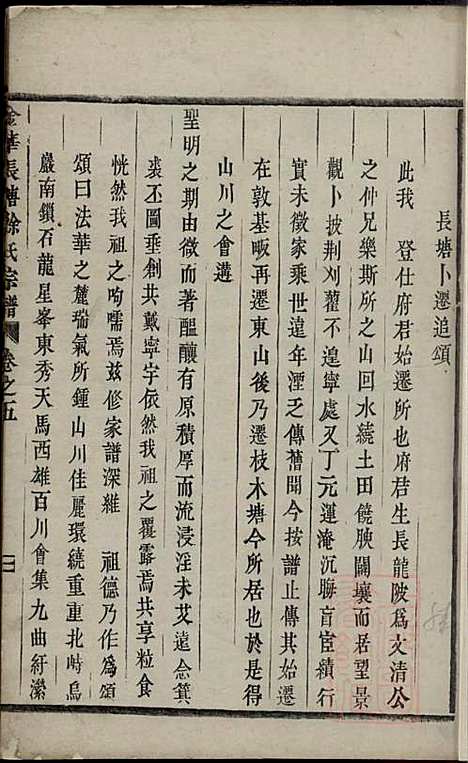 長塘卜遷追頌
此我　登仕府君始遷所也府君生長龍陂爲文清公
之仲兄樂斯所之山回水繞土田饒腴闢壤而居望景
觀卜披荆刈雚不遑寧處又丁元運淹沉晦盲宦績行
實未徵家乘世遠年湮乏傳舊聞今按譜止傳其始遷
在敦基畈再遷東山後乃遷枝木塘今所居也於是得
山川之會遘
聖明之期由微而著醞釀有原積厚而流浸淫未艾遠念箕
裘丕圖垂創共戴寧宇依然我祖之覆露焉共享粒食
恍然我祖之呴嚅焉兹修家譜深維　祖德乃作爲頌
頌曰法華之麓瑞氣所鍾山川佳麗環繞重重北峙烏
巖南鎖石龍星峯東秀天馬西雄百川會集九曲紆瀠
金華長塘徐氏宗譜　卷之五　二